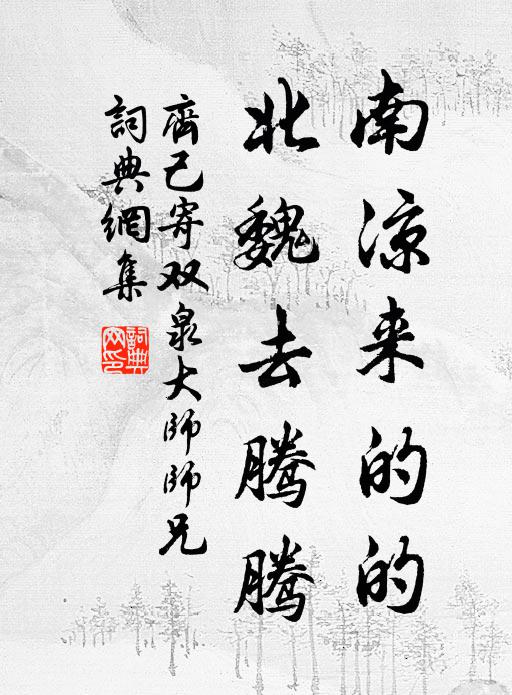 南凉来的的
北魏去腾腾
齊己寄双泉大师师兄
詞典網集
詞典網印